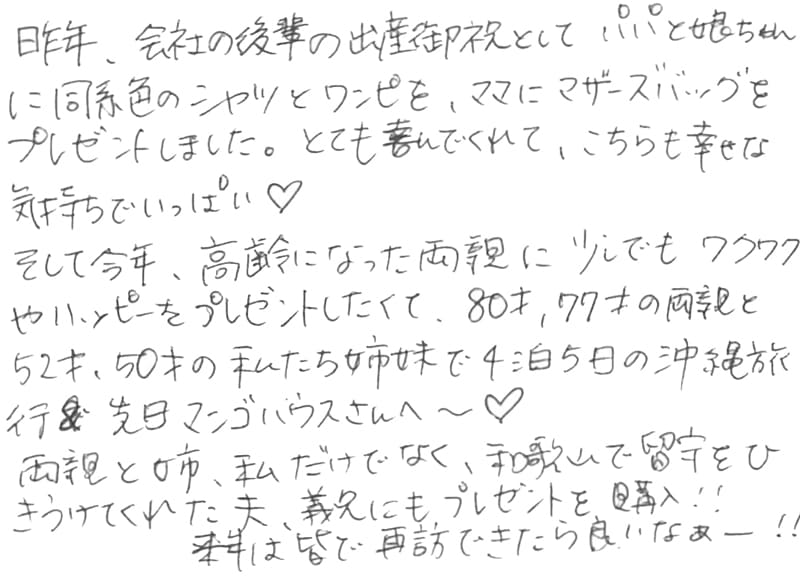 昨年、会社の後輩の出産御祝として パパと娘ちゃん
に同系色のシャツとワンピを、ママにマザーズバッグを
プレゼントしました。とても喜んでくれて、こちらも幸せな
気持ちでいっぱい♡
そして今年、高齢になった両親に 少しでも ワクワク
やハッピーをプレゼントしたくて、80才,77才の両親と
52才、50才の私たち姉妹で4泊5日の沖縄旅
行 先日マンゴハウスさんへ～♡
両親と姉、私だけでなく、和歌山で留守をひ
きうけてくれた夫、義兄にもプレゼントを購入!!
来年は皆で再訪できたら良いなぁー!!